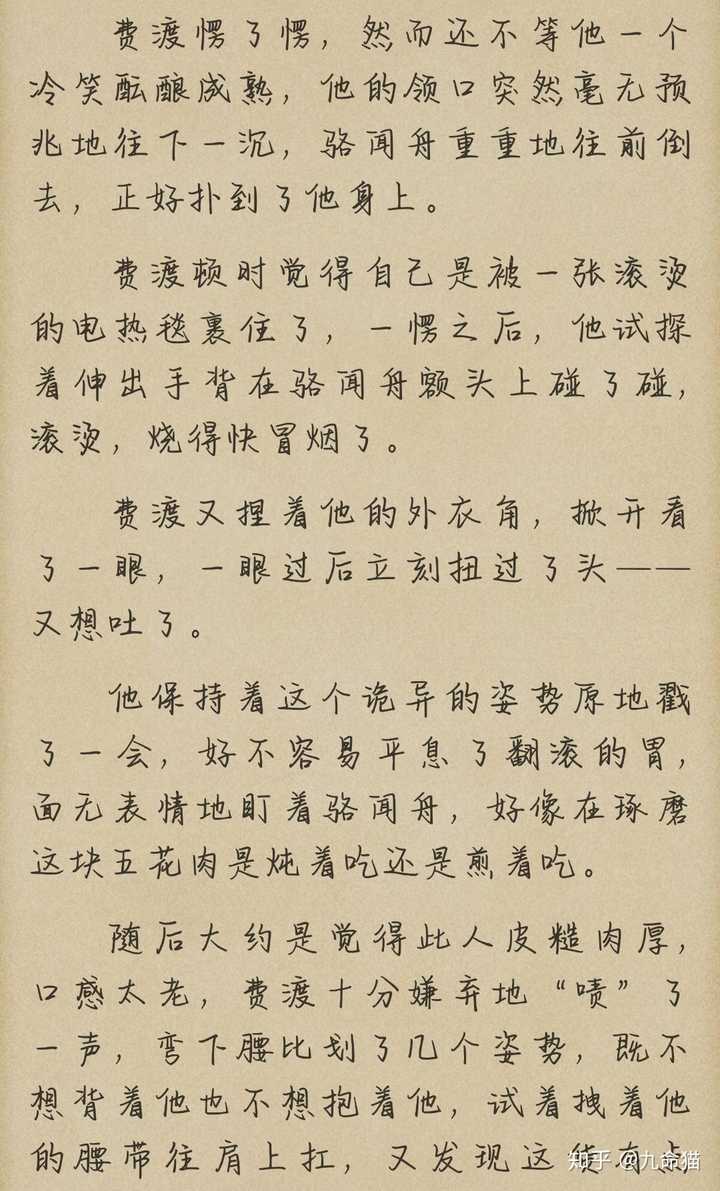 费渡愣了愣，然而还不等他一个
冷笑酝酿成熟，他的领口突然毫无预
兆地往下一沉，骆闻舟重重地往前倒
去，正好扑到了他身上。
费渡顿时觉得自己是被一张滚烫
的电热毯裹住了，一愣之后，他试探
着伸出手背在骆闻舟额头上碰了碰，
滚烫，烧得快冒烟了。
费渡又捏着他的外衣角，掀开看
了一眼，一眼过后立刻扭过了头——
又想吐了。
他保持着这个诡异的姿势原地戳
了一会，好不容易平息了翻滚的胃，
面无表情地盯着骆闻舟，好像在琢磨
这块五花肉是炖着吃还是煎着吃。
随后大约是觉得此人皮糙肉厚，
口感太老，费渡十分嫌弃地“啧”了
一声，弯下腰比划了几个姿势，既不
想背着他也不想抱着他，试着拽着他
的腰带往肩上扛，又发现这货有点
知乎 @九命猫